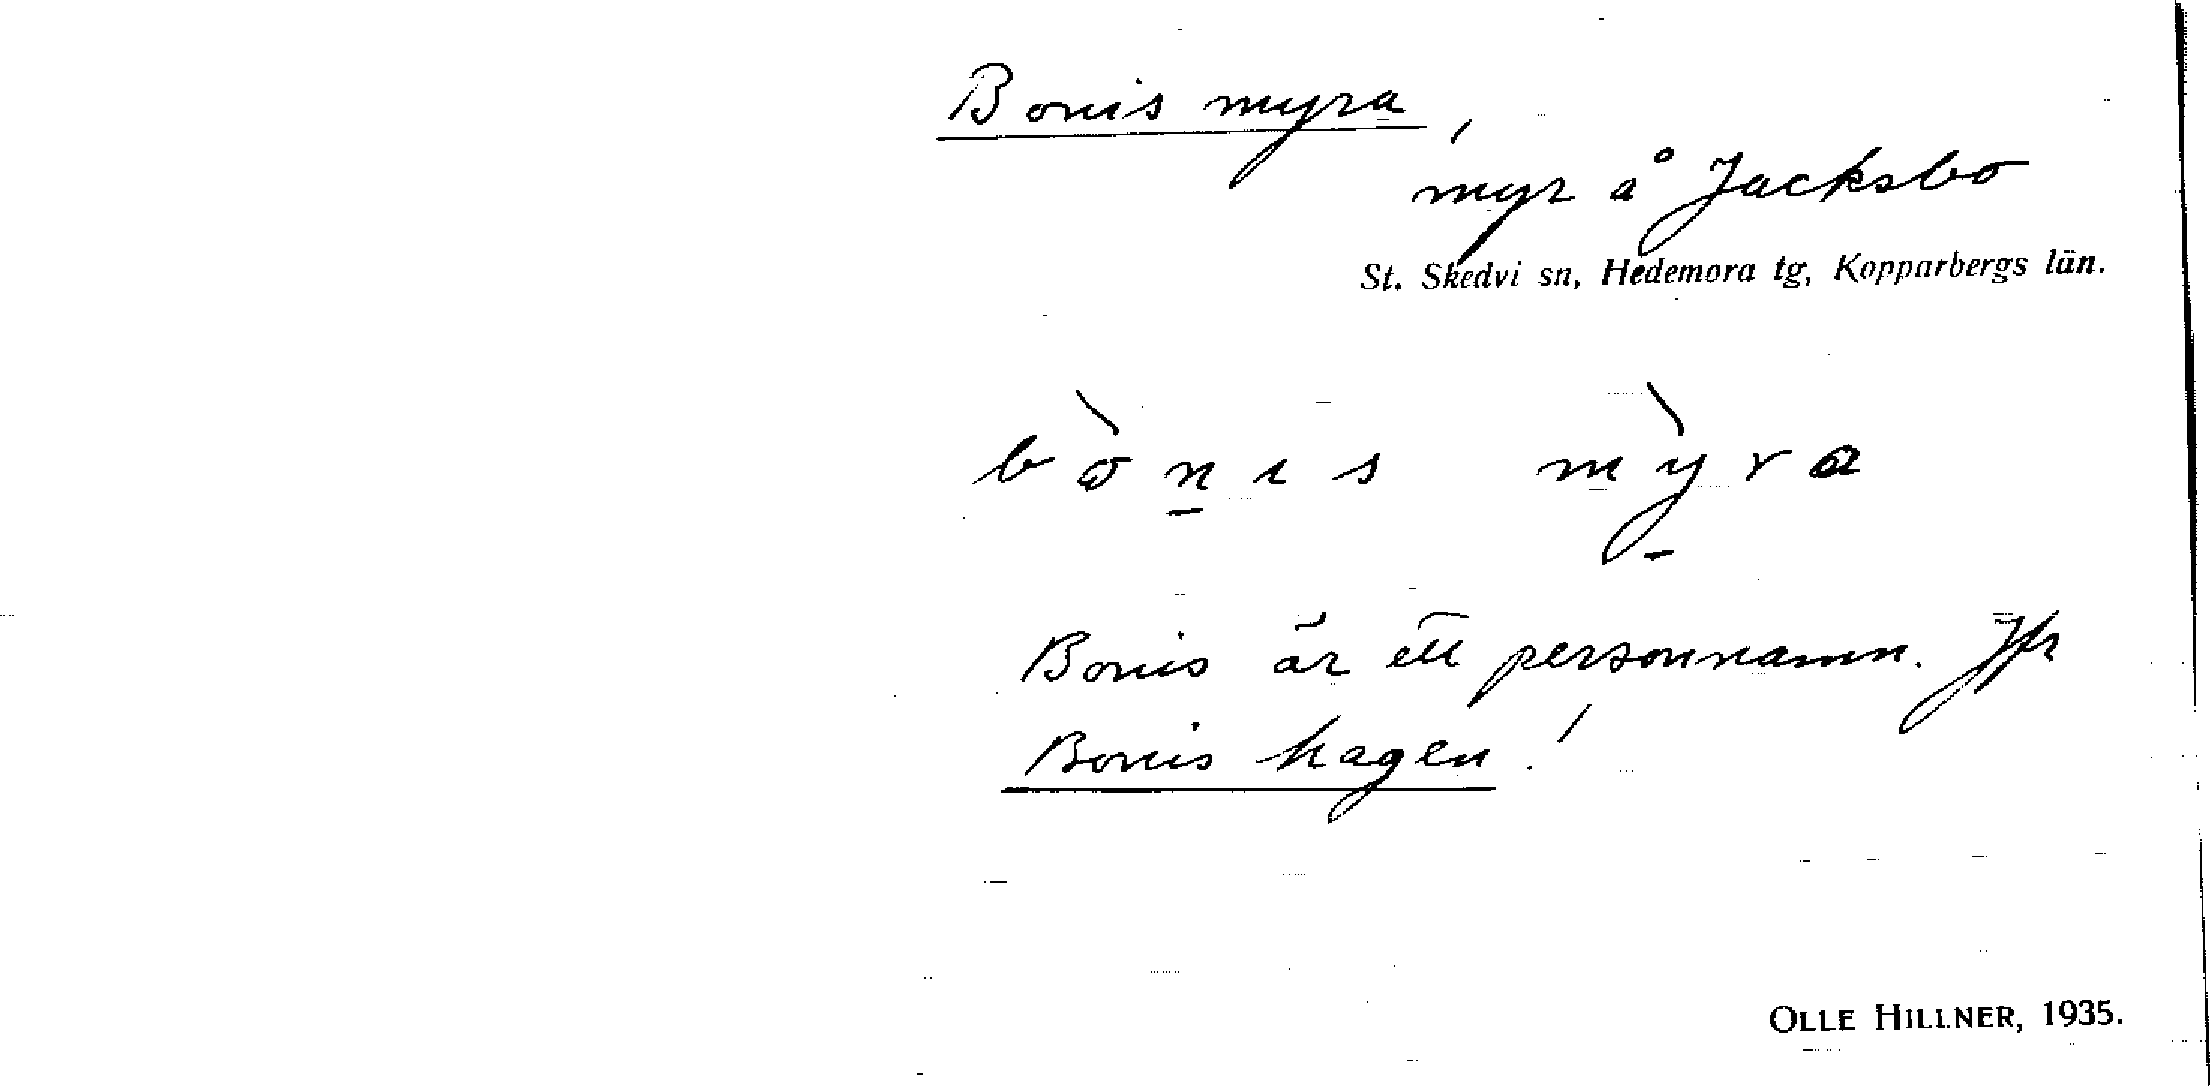 Bonis myra,
myr å Jacksbo
St. Skedvi sn, Hedemora tg, Kopparbergs län.
bònis mỳra
Bonis är ett personnamn. Jfr
Bonis hagen!
OLLE HILLNER, 1935.